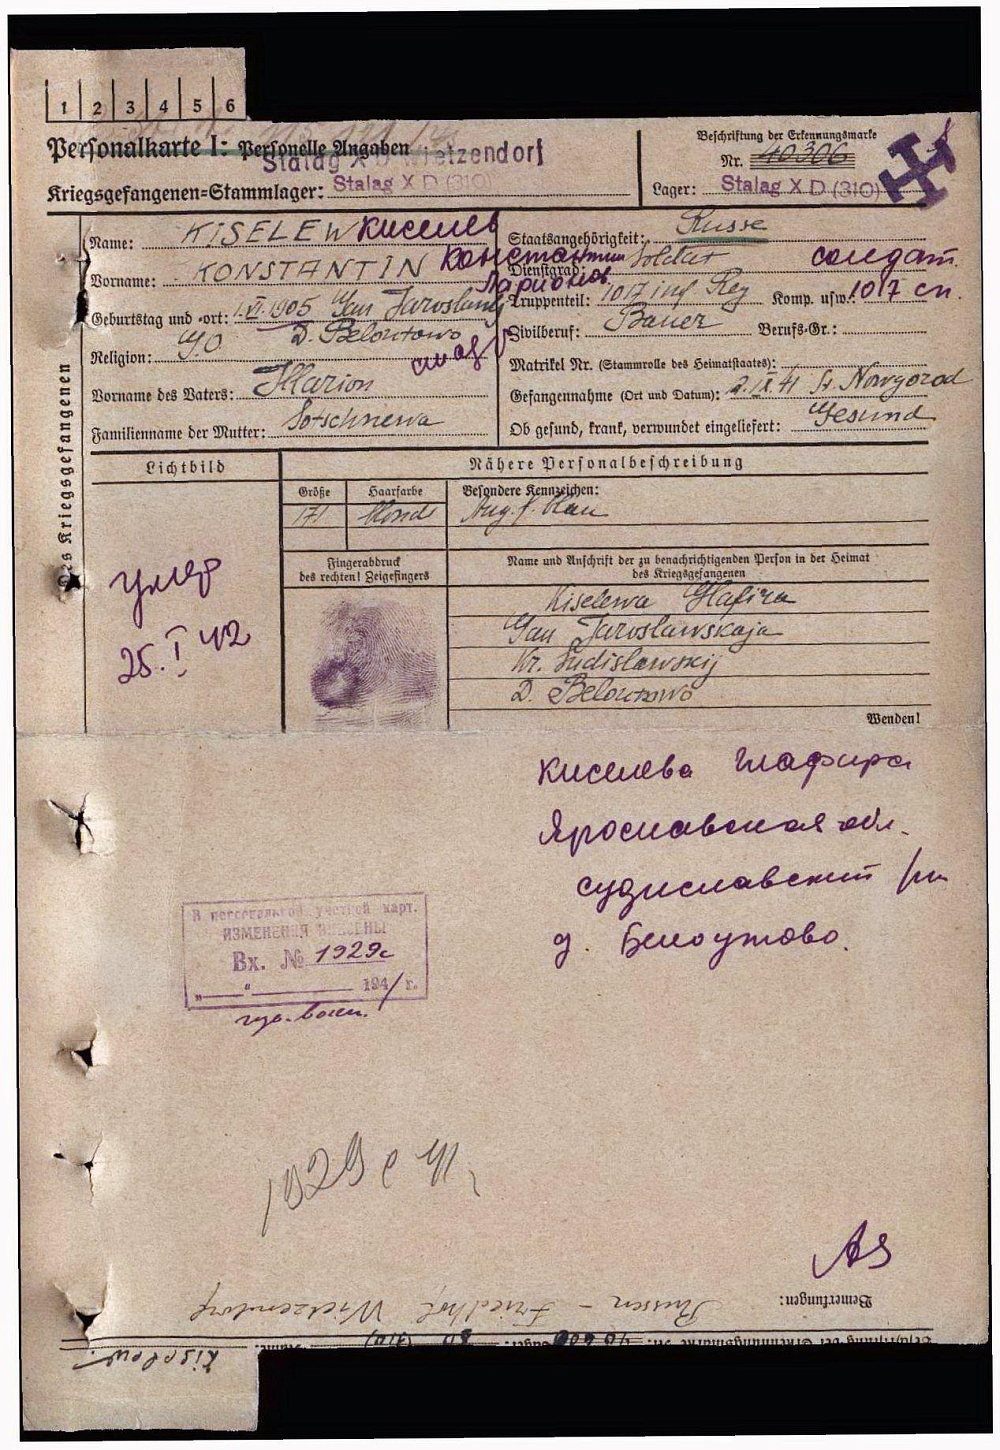 1 2 3 4 5 6
Personalkarte I: Personelle Angaben
Stalag X D Wietzendorf
Kriegsgefangenen=Stammlager: Stalag X D (310)
Beschriftung der Erkennungsmarke
Nr. 40306
Lager: Stalag X D (310)
Des Kriegsgefangenen
Name: KISELEW Киселев
Vorname: KONSTANTIN Константин
Ларионов.
Geburtstag und =ort: 1.VI.1905 Gau Jaroslawl
D. Beloutowo
Religion:
Vorname des Vaters: Illarion
Familienname der Mutter: Sotschnewa
Staatsangehörigkeit: Russe
Dienstgrad: Soldat солдат.
Truppenteil: 1017 inf Reg Komp. usw.: 1017 сп.
Zivilberuf: Bauer Berufs-Gr.:
Matrikel Nr. (Stammrolle des Heimatstaates):
Gefangennahme (Ort und Datum): 2.IX.41 St. Nowgorod
Ob gesund, krank, verwundet eingeliefert: Gesund
Lichtbild
умер
25.I 42
Nähere Personalbeschreibung
Größe Haarfarbe Besondere Kennzeichen:
171 blond Aug. f. blau
Fingerabdruck
des rechten! Zeigefingers
Name und Anschrift der zu benachrichtigenden Person in der Heimat
des Kriegsgefangenen
Kiselewa Glafira
Gau Jaroslawskaja
Kr. Sudislawskij
D. Beloutowo
Wenden!
Киселева Глафира
Ярославская обл.
судиславский рн
д. Белоутово.
В персональной учетной карт.
ИЗМЕНЕНИЯ ВНЕСЕНЫ
Вх. № 1929с
„ “ 194 г.
1929 с
Bemerkungen:
Russen - Friedhof Wietzendorf
Kiselew.